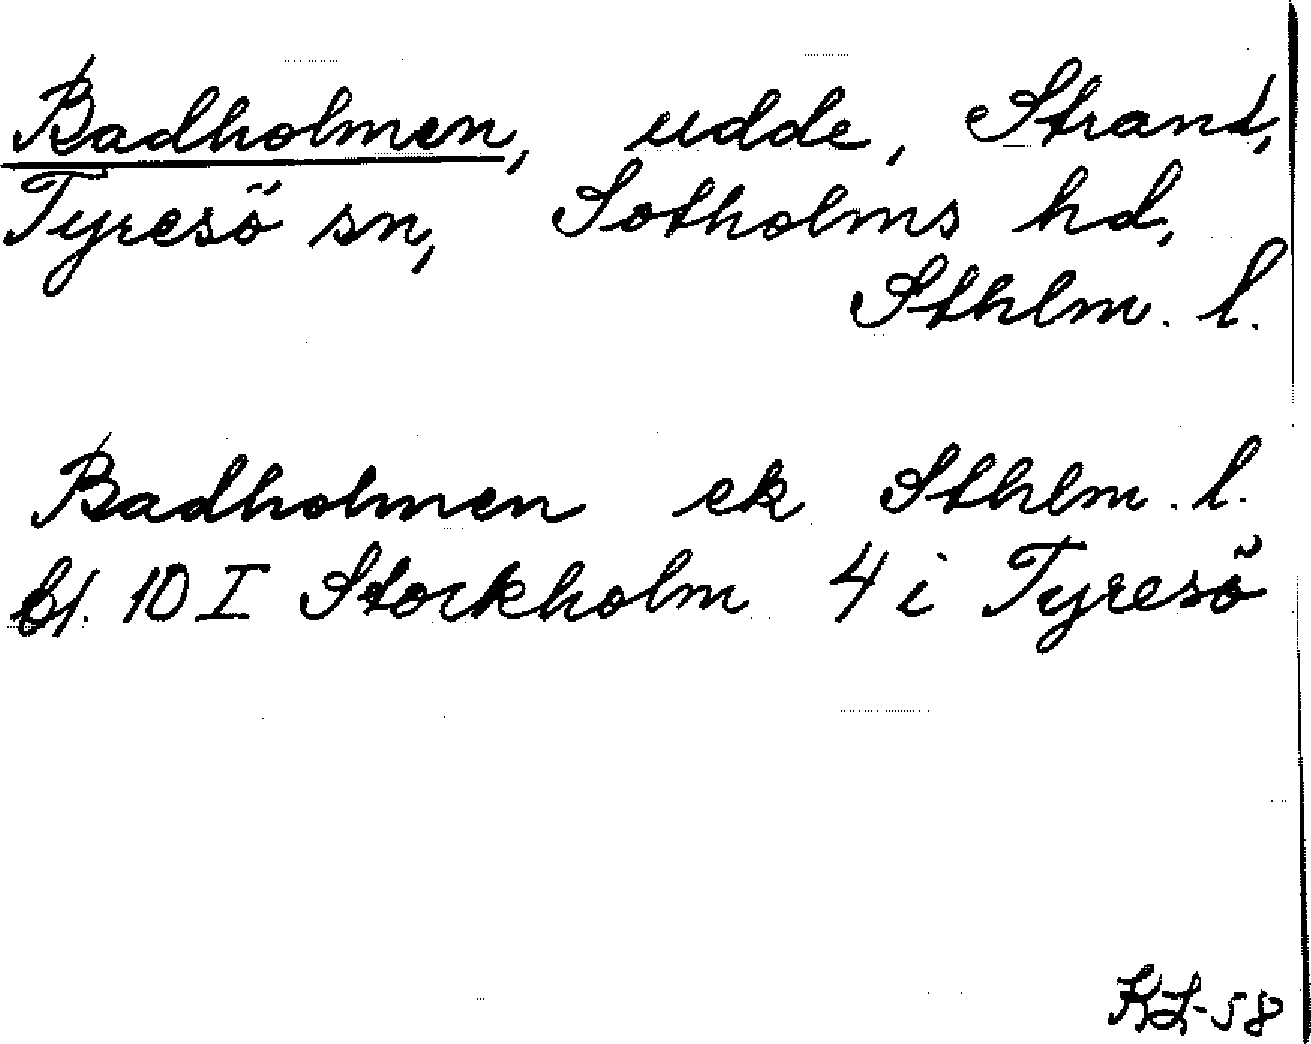 Badholmen, udde, Strand,
Tyresö sn, Sotholms hd,
Sthlm. l.
Badholmen ek Sthlm. l.
bl. 10 I Stockholm 4 i Tyresö
KL-58